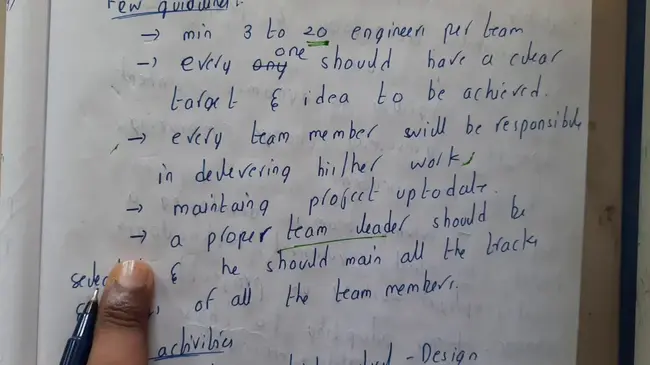 Few guidlines:
→ min 3 to 20 engineers per team
→ every one should have a clear
target & idea to be achieved.
→ every team member will be responsible
in delevering his/her work,
→ maintaing project uptodate.
→ a proper team leader should be
& he should main all the tracks
of all the team members.
activities
- Design